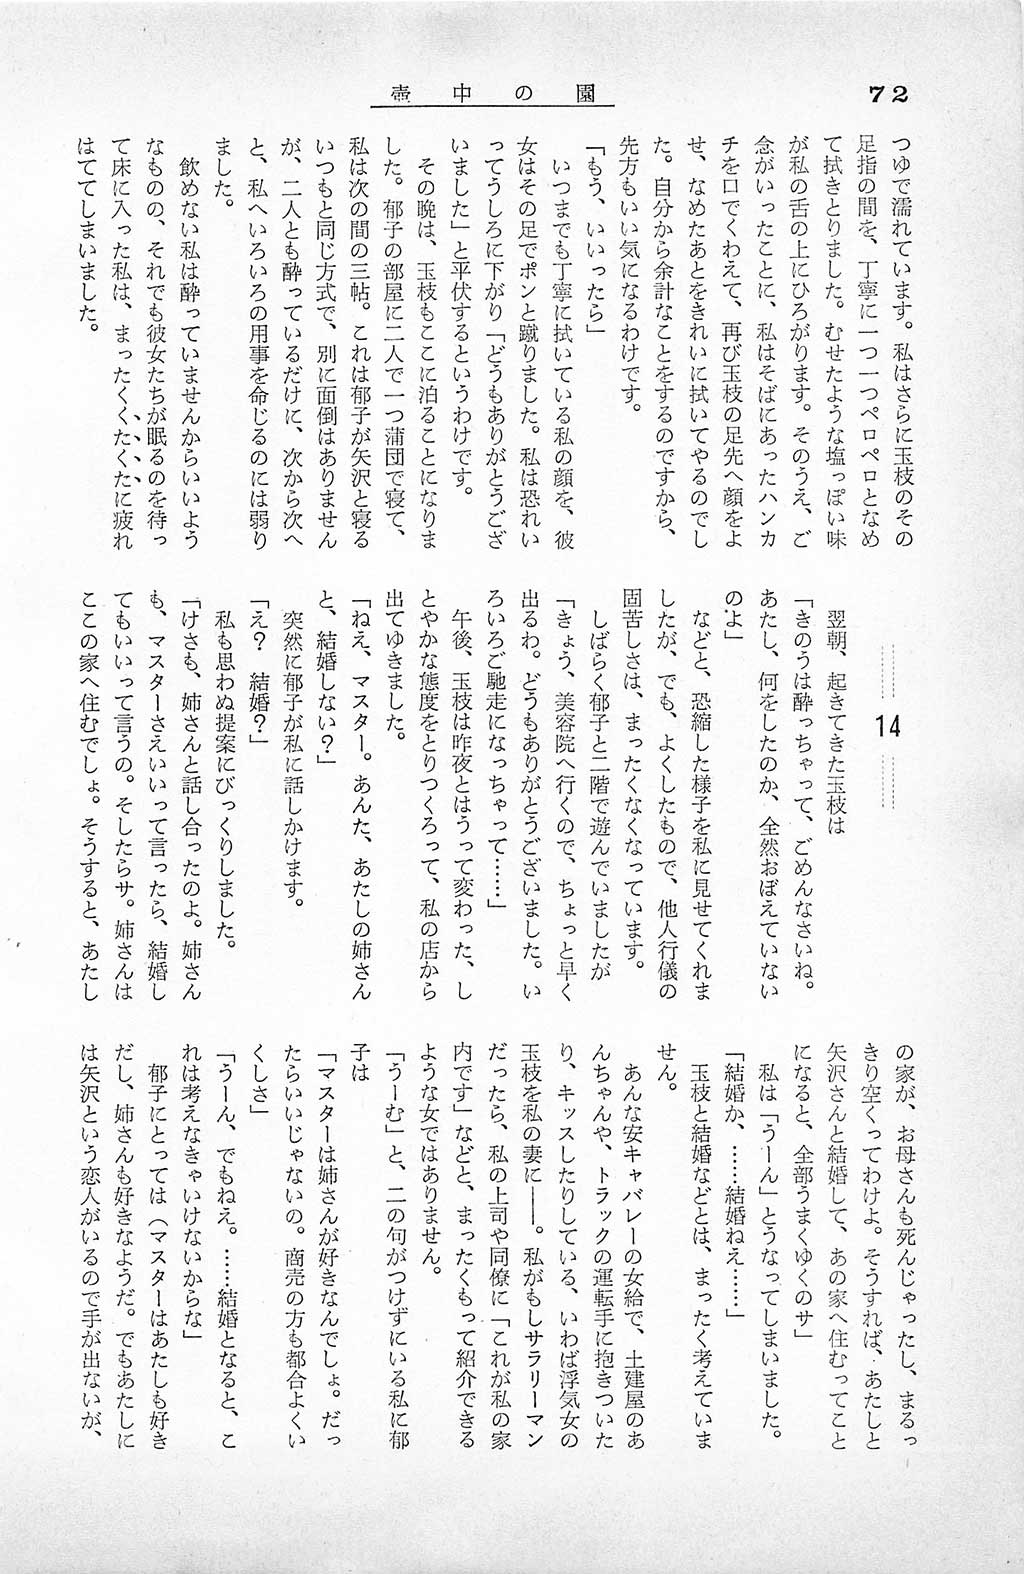 72
壺中の園
つゆで濡れています。私はさらに玉枝のその
足指の間を、丁寧に一つ一つペロペロとなめ
て拭きとりました。むせたような塩っぽい味
が私の舌の上にひろがります。そのうえ、ご
念がいったことに、私はそばにあったハンカ
チを口でくわえて、再び玉枝の足先へ顔をよ
せ、なめたあとをきれいに拭いてやるのでし
た。自分から余計なことをするのですから、
先方もいい気になるわけです。
「もう、いいったら」
いつまでも丁寧に拭いている私の顔を、彼
女はその足でポンと蹴りました。私は恐れい
ってうしろに下がり「どうもありがとうござ
いました」と平伏するというわけです。
その晩は、玉枝もここに泊ることになりま
した。郁子の部屋に二人で一つ蒲団で寝て、
私は次の間の三帖。これは郁子が矢沢と寝る
いつもと同じ方式で、別に面倒はありません
が、二人とも酔っているだけに、次から次へ
と、私へいろいろの用事を命じるのには弱り
ました。
飲めない私は酔っていませんからいいよう
なものの、それでも彼女たちが眠るのを待っ
て床に入った私は、まったくくたくたに疲れ
はててしまいました。
14
翌朝、起きてきた玉枝は
「きのうは酔っちゃって、ごめんなさいね。
あたし、何をしたのか、全然おぼえていない
のよ」
などと、恐縮した様子を私に見せてくれま
したが、でも、よくしたもので、他人行儀の
固苦しさは、まったくなくなっています。
しばらく郁子と二階で遊んでいましたが
「きょう、美容院へ行くので、ちょっと早く
出るわ。どうもありがとうございました。い
ろいろご馳走になっちゃって……」
午後、玉枝は昨夜とはうって変わった、し
とやかな態度をとりつくろって、私の店から
出てゆきました。
「ねえ、マスター。あんた、あたしの姉さん
と、結婚しない？」
突然に郁子が私に話しかけます。
「え？　結婚？」
私も思わぬ提案にびっくりしました。
「けさも、姉さんと話し合ったのよ。姉さん
も、マスターさえいいって言ったら、結婚し
てもいいって言うの。そしたらサ。姉さんは
ここの家へ住むでしょ。そうすると、あたし
の家が、お母さんも死んじゃったし、まるっ
きり空くってわけよ。そうすれば、あたしと
矢沢さんと結婚して、あの家へ住むってこと
になると、全部うまくゆくのサ」
私は「うーん」とうなってしまいました。
「結婚か、……結婚ねえ……」
玉枝と結婚などとは、まったく考えていま
せん。
あんな安キャバレーの女給で、土建屋のあ
んちゃんや、トラックの運転手に抱きついた
り、キッスしたりしている、いわば浮気女の
玉枝を私の妻に――。私がもしサラリーマン
だったら、私の上司や同僚に「これが私の家
内です」などと、まったくもって紹介できる
ような女ではありません。
「うーむ」と、二の句がつけずにいる私に郁
子は
「マスターは姉さんが好きなんでしょ。だっ
たらいいじゃないの。商売の方も都合よくい
くしさ」
「うーん、でもねえ。……結婚となると、こ
れは考えなきゃいけないからな」
郁子にとっては（マスターはあたしも好き
だし、姉さんも好きなようだ。でもあたしに
は矢沢という恋人がいるので手が出ないが、